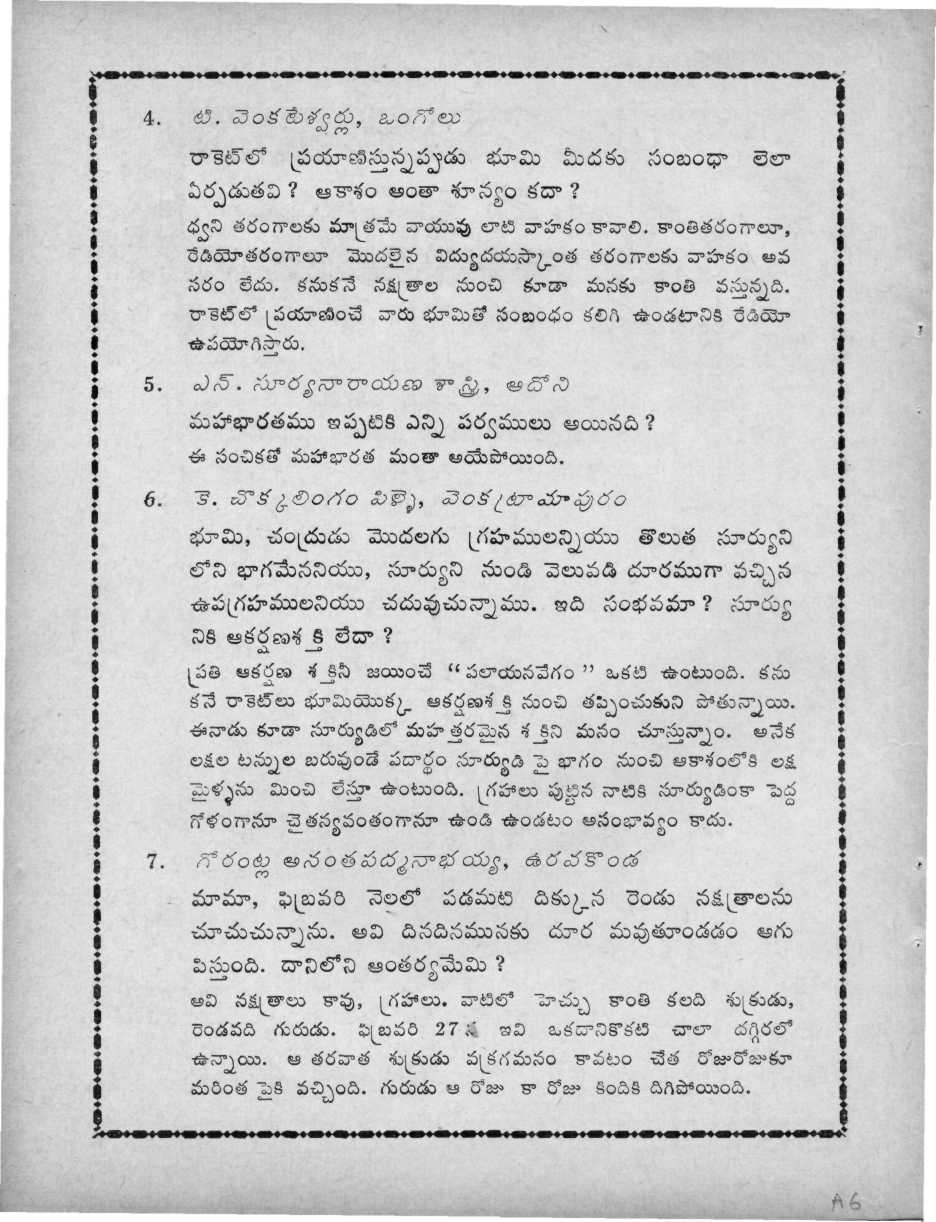 4. టి. వెంకటేశ్వర్లు, ఒంగోలు
రాకెట్‌లో ప్రయాణిస్తున్నప్పుడు భూమి మీదకు సంబంధా లెలా
ఏర్పడుతవి ? ఆకాశం అంతా శూన్యం కదా ?
ధ్వని తరంగాలకు మాత్రమే వాయువు లాటి వాహకం కావాలి. కాంతితరంగాలూ,
రేడియోతరంగాలూ మొదలైన విద్యుదయస్కాంత తరంగాలకు వాహకం అవ
సరం లేదు. కనుకనే నక్షత్రాల నుంచి కూడా మనకు కాంతి వస్తున్నది.
రాకెట్‌లో ప్రయాణించే వారు భూమితో సంబంధం కలిగి ఉండటానికి రేడియో
ఉపయోగిస్తారు.
5. ఎన్. సూర్యనారాయణ శాస్త్రి, ఆదోని
మహాభారతము ఇప్పటికి ఎన్ని పర్వములు అయినది ?
ఈ సంచికతో మహాభారత మంతా అయేపోయింది.
6. కె. చొక్కలింగం పిళ్ళై, వెంకట్రాయాపురం
భూమి, చంద్రుడు మొదలగు గ్రహములన్నియు తొలుత సూర్యుని
లోని భాగమేననియు, సూర్యుని నుండి వెలువడి దూరముగా వచ్చిన
ఉపగ్రహములనియు చదువుచున్నాము. ఇది సంభవమా ? సూర్యు
నికి ఆకర్షణశక్తి లేదా ?
ప్రతి ఆకర్షణ శక్తినీ జయించే “పలాయనవేగం” ఒకటి ఉంటుంది. కను
కనే రాకెట్‌లు భూమియొక్క ఆకర్షణశక్తి నుంచి తప్పించుకుని పోతున్నాయి.
ఈనాడు కూడా సూర్యుడిలో మహత్తరమైన శక్తిని మనం చూస్తున్నాం. అనేక
లక్షల టన్నుల బరువుండే పదార్థం సూర్యుడి పై భాగం నుంచి ఆకాశంలోకి లక్ష
మైళ్ళను మించి లేస్తూ ఉంటుంది. గ్రహాలు పుట్టిన నాటికి సూర్యుడింకా పెద్ద
గోళంగానూ చైతన్యవంతంగానూ ఉండి ఉండటం అసంభావ్యం కాదు.
7. గోరంట్ల అనంతపద్మనాభయ్య, ఉరవకొండ
మామా, ఫిబ్రవరి నెలలో పడమటి దిక్కున రెండు నక్షత్రాలను
చూచుచున్నాను. అవి దినదినమునకు దూర మవుతూండడం అగు
పిస్తుంది. దానిలోని ఆంతర్యమేమి ?
అవి నక్షత్రాలు కావు, గ్రహాలు. వాటిలో హెచ్చు కాంతి కలది శుక్రుడు,
రెండవది గురుడు. ఫిబ్రవరి 27న ఇవి ఒకదానికొకటి చాలా దగ్గిరలో
ఉన్నాయి. ఆ తరవాత శుక్రుడు వక్రగమనం కావటం చేత రోజురోజుకూ
మరింత పైకి వచ్చింది. గురుడు ఆ రోజు కా రోజు కిందికి దిగిపోయింది.
A6